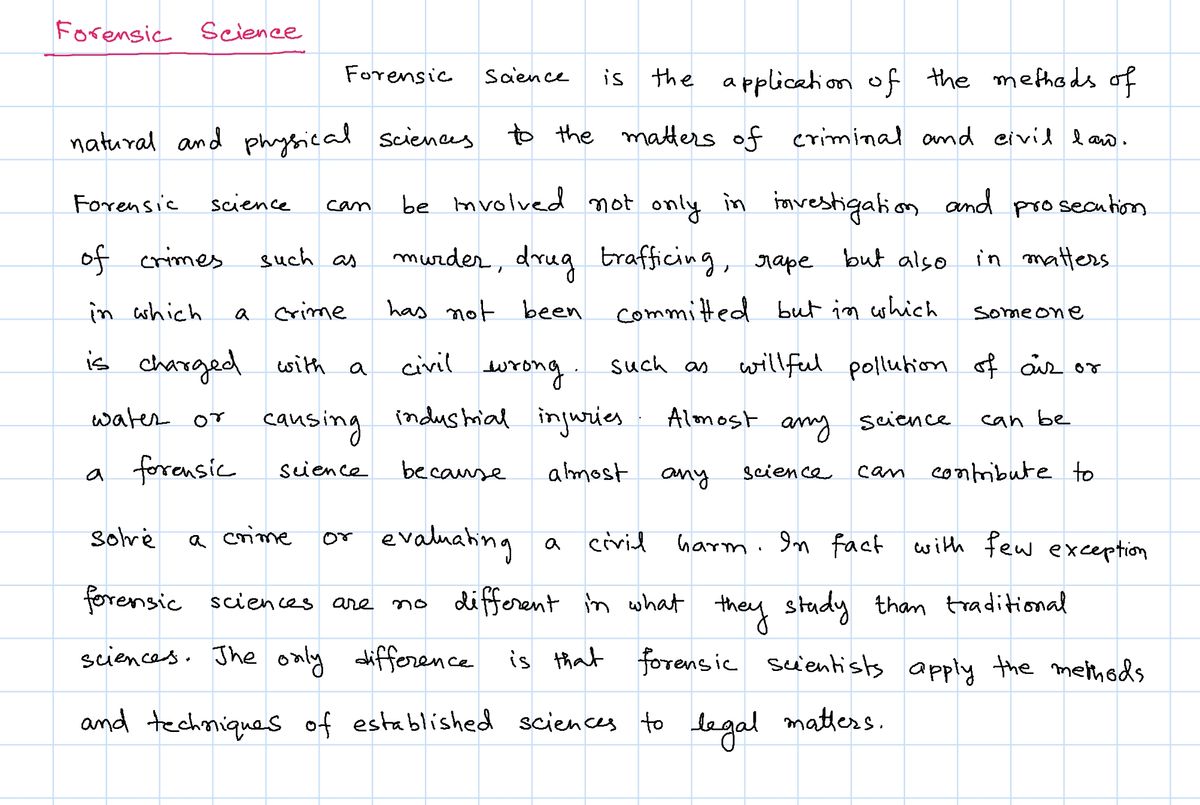 Forensic Science
Forensic Science is the application of the methods of
natural and physical sciences to the matters of criminal and civil law.
Forensic science can be involved not only in investigation and prosecution
of crimes such as murder, drug trafficing, rape but also in matters
in which a crime has not been committed but in which someone
is charged with a civil wrong. such as willful pollution of air or
water or causing industrial injuries. Almost any science can be
a forensic science because almost any science can contribute to
solve a crime or evaluating a civil harm. In fact with few exception
forensic sciences are no different in what they study than traditional
sciences. The only difference is that forensic scientists apply the methods
and techniques of established sciences to legal matters.